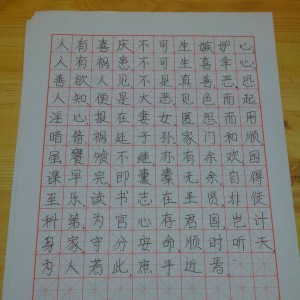 人有喜庆不可生嫉妒心
人有祸患不可生喜幸心
善欲人见不是真善恶恐
人知便是大恶见色而起
淫心报在妻女匿怨而用
暗箭祸延子孙家门和顺
虽饔飧不继亦有余欢国
课早完即囊橐无余自得
至乐读书志在圣贤非徒
科第为官心存君国岂计
身家守分安命顺时听天
为人若此庶乎近焉